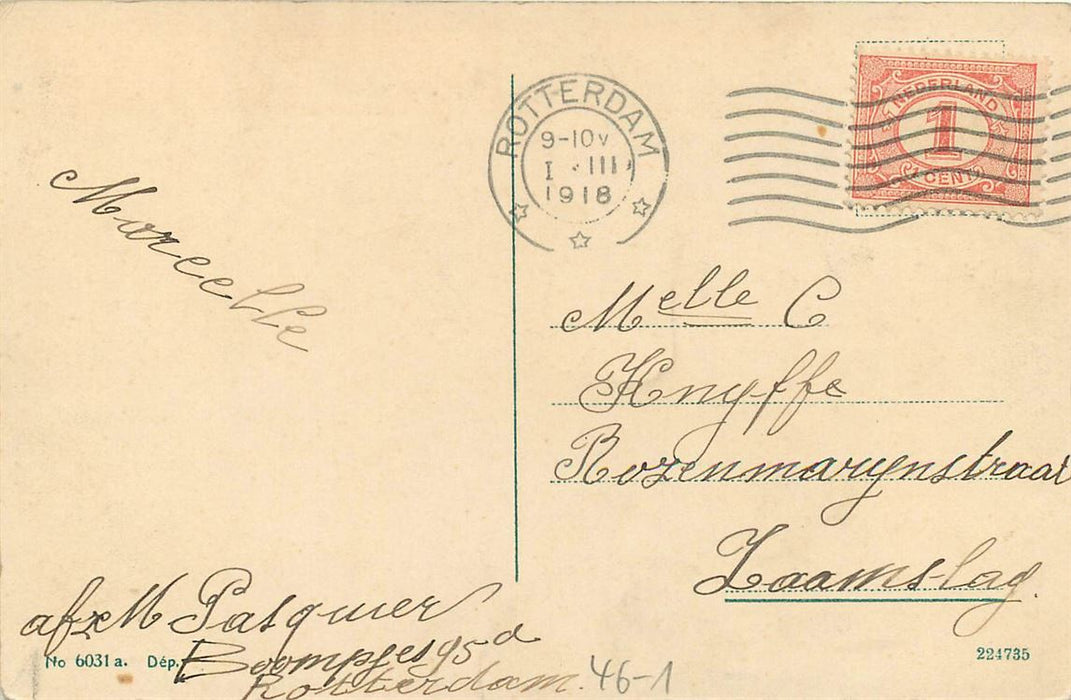 ROTTERDAM
9-10V
I · III
1918
NEDERLAND
1
CENT
Marcelle
Melle C
Knyffe
Rozenmarynstraat
Zaamslag.
afz M Pasquier
Boompjes 95d
Rotterdam.
46-1
No 6031 a. Dép.
224735